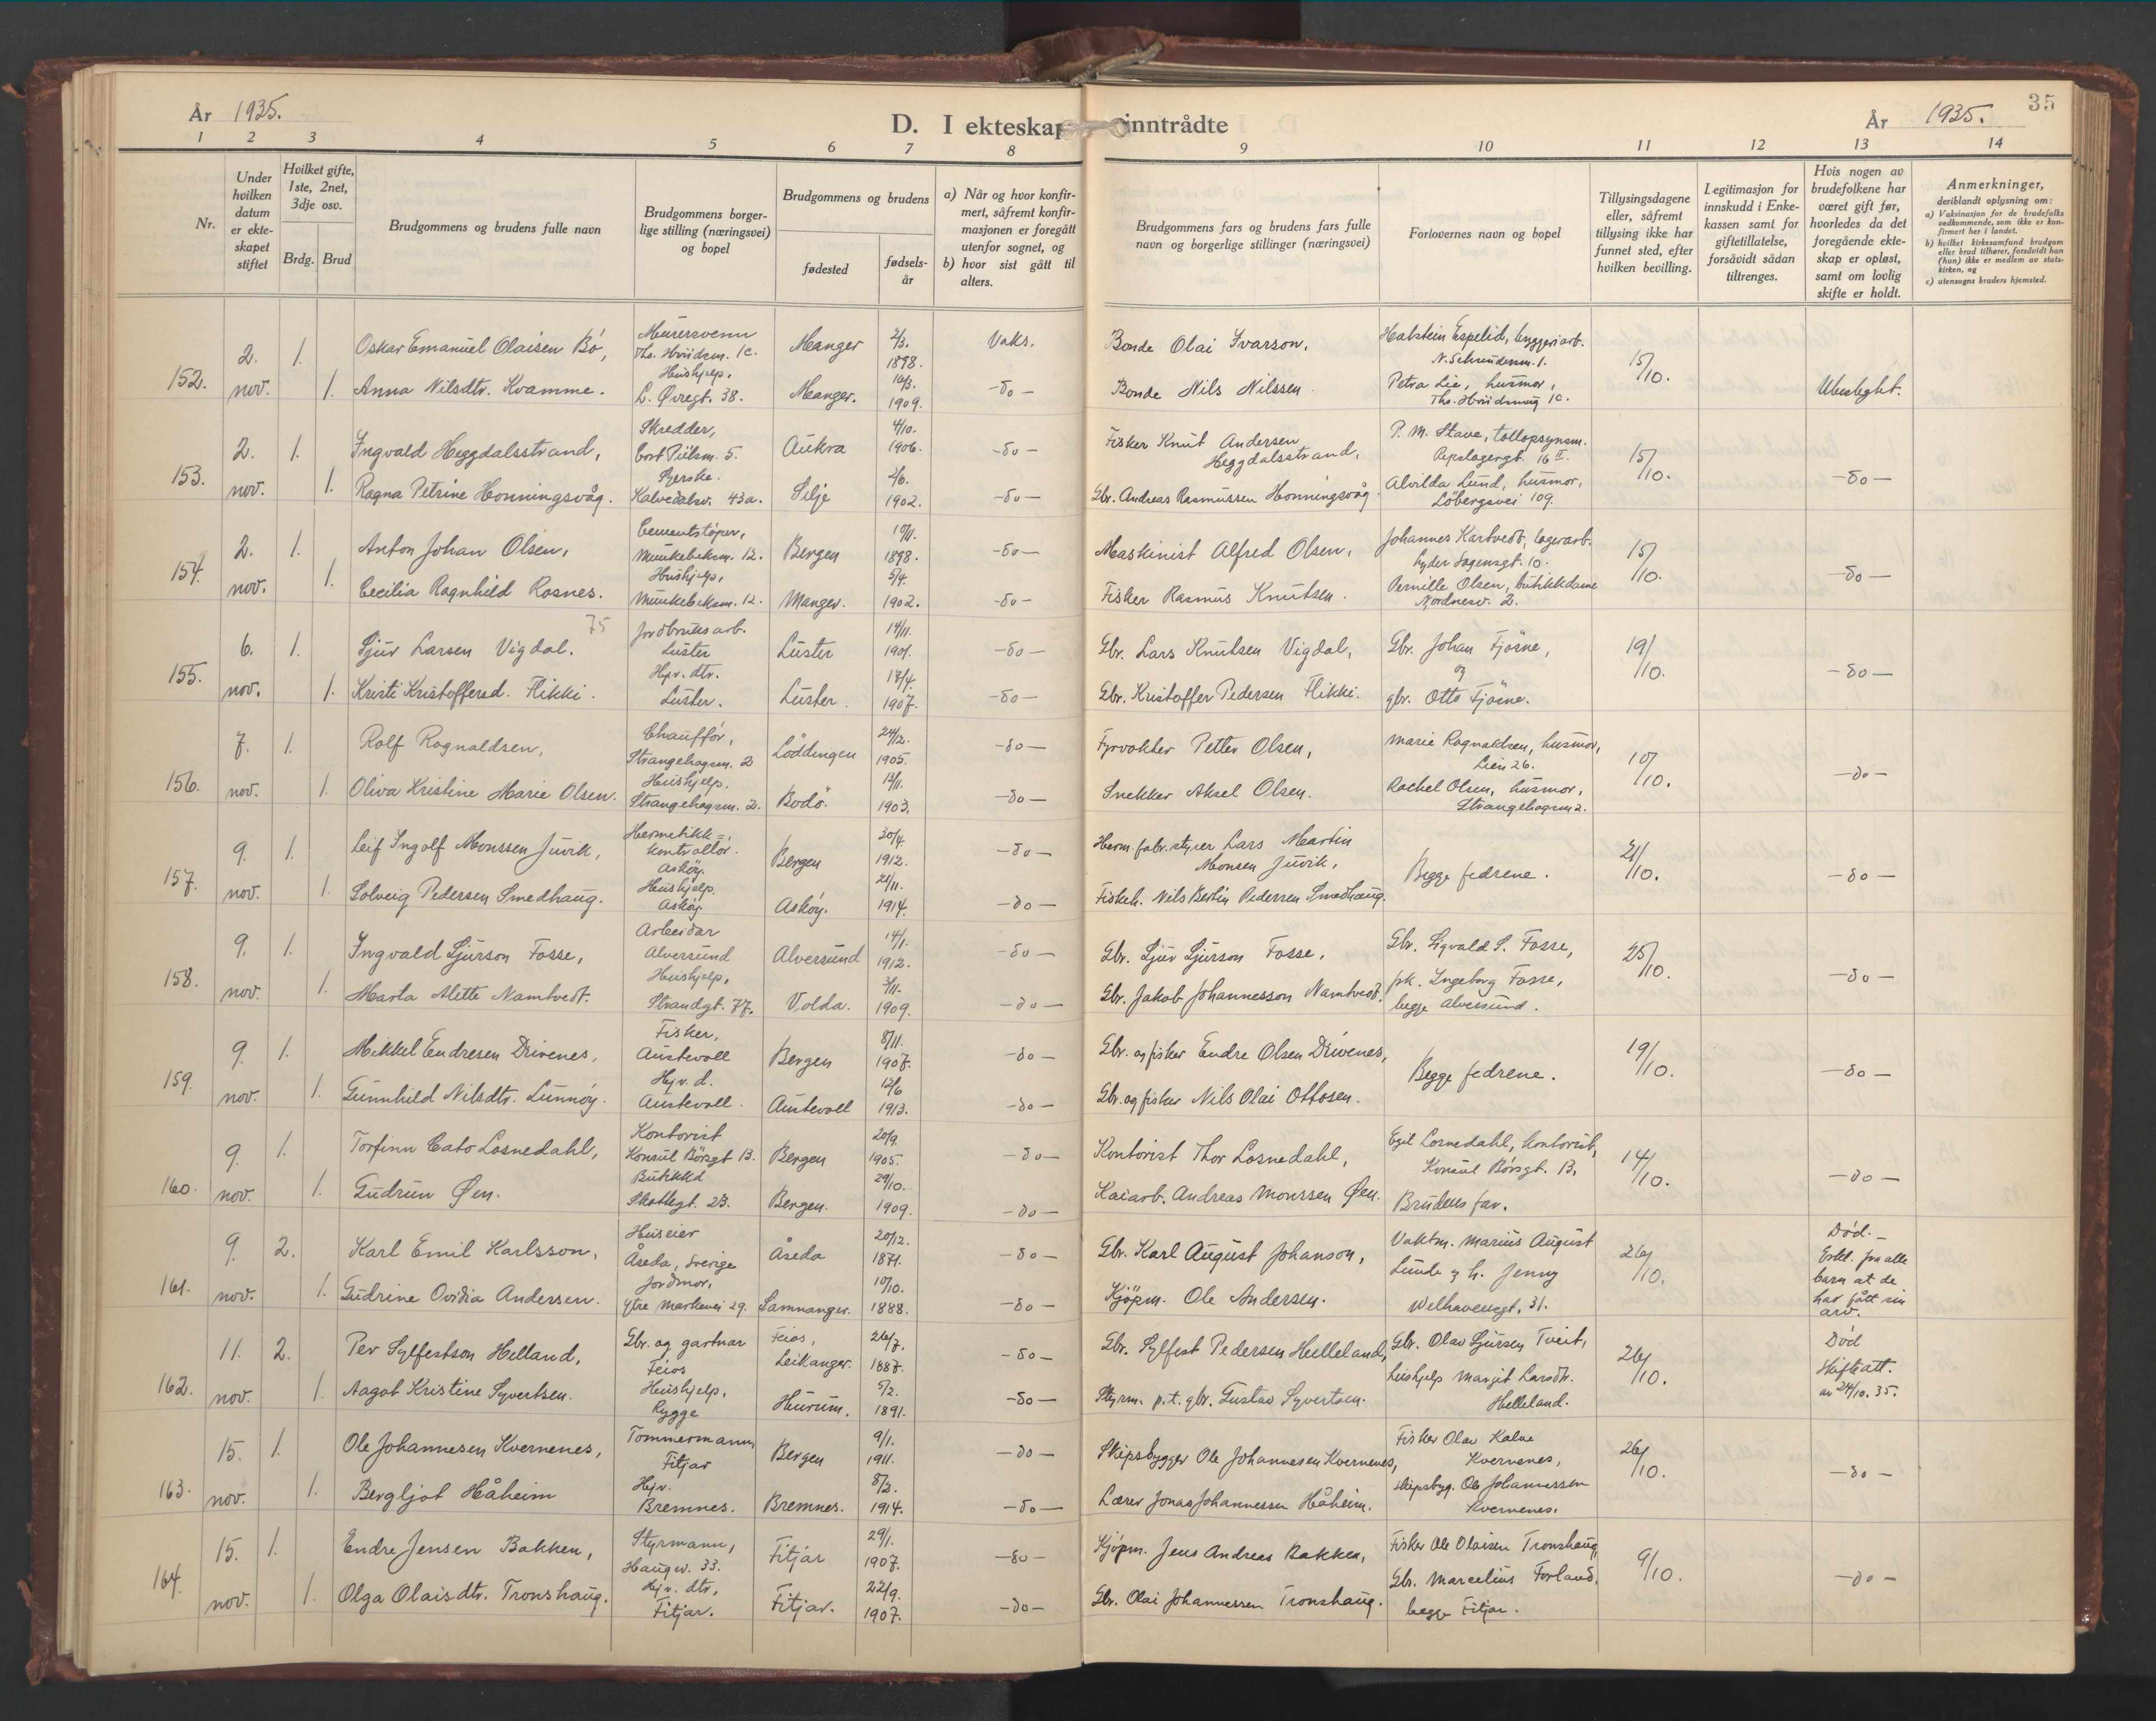 År 1935.
D. I ekteskap inntrådte
År 1935.
35
1 2 3 4 5 6 7 8 9 10 11 12 13 14
Nr.
Under hvilken datum er ekteskapet stiftet
Hvilket gifte, 1ste, 2net, 3dje osv.
Brdg. Brud
Brudgommens og brudens fulle navn
Brudgommens borgerlige stilling (næringsvei) og bopel
Brudgommens og brudens
fødested
fødselsår
a) Når og hvor konfirmert, såfremt konfirmasjonen er foregått utenfor sognet, og
b) hvor sist gått til alters.
Brudgommens fars og brudens fars fulle navn og borgerlige stillinger (næringsvei)
Forlovernes navn og bopel
Tillysingsdagene eller, såfremt tillysing ikke har funnet sted, efter hvilken bevilling.
Legitimasjon for innskudd i Enkekassen samt for giftetillatelse, forsåvidt sådan tiltrenges.
Hvis nogen av brudefolkene har været gift før, hvorledes da det foregående ekteskap er opløst, samt om lovlig skifte er holdt.
Anmerkninger, deriblandt oplysning om:
a) Vaksinasjon for de brudefolks vedkommende, som ikke er konfirmert her i landet.
b) hvilket kirkesamfund brudgom eller brud tilhører, forsåvidt han (hun) ikke er medlem av statskirken, og
c) utensogns bruders hjemsted.
152. 2. nov. 1. Oskar Emanuel Olaisen Bö, Murersvenn Ths. Hviidsm. 1c. Manger 2/3. 1898. Vaks. Bonde Olai Ivarson, Halstein Espelid, bryggeriarb. N. Schreudersm. 1. 15/10.
1. Anna Nilsdtr. Kvamme. Hushjelp, L. Øvregt. 38. Manger. 16/3. 1909. -do- Bonde Nils Nilssen. Petra Lie, husmor, Ths. Hviidsmug 1c. Ubeslegtet.
153. 2. nov. 1. Ingvald Heggdalsstrand, Skredder, Cort Piilsm. 5. Aukra 4/10. 1906. -do- Fisker Knut Andersen Heggdalsstrand, P. M. Stave, tollopsynsm. Repslagergt. 16 II. 15/10. -do-
1. Ragna Petrine Honningsvåg. Syerske. Kalvedalsv. 43a. Selje 2/6. 1902. -do- Gbr. Andreas Rasmussen Honningsvåg. Alvilda Lund, husmor, Löbergsvei 109.
154. 2. nov. 1. Anton Johan Olsen, Cementstöper, Munkebeksm. 12. Bergen 10/11. 1898. -do- Maskinist Alfred Olsen, Johannes Kartvedt, lagerarb. Lyder Sagensgt. 10. 15/10. -do-
1. Cecilia Ragnhild Rosnes. Hushjelp, Munkebeksm. 12. Manger. 5/4. 1902. -do- Fisker Rasmus Knutsen. Pernille Olsen, butikkdame Nordnesv. 2.
75
155. 6. nov. 1. Sjur Larsen Vigdal. Jordbruksarb. Luster Luster 14/11. 1901. -do- Gbr. Lars Knutsen Vigdal, Gbr. Johan Fjösne, og 19/10. -do-
1. Kristi Kristoffersd. Flikki. Hjv. dtr. Luster. Luster. 18/4. 1907. -do- Gbr. Kristoffer Pedersen Flikki. gbr. Otto Fjösne.
156. 7. nov. 1. Rolf Ragnaldsen, Chauffór, Strangehagem. 2 Löddingen 24/12. 1905. -do- Fyrvokter Petter Olsen, Marie Ragnaldsen, husmor, Lien 26. 10/10. -do-
1. Oliva Kristine Marie Olsen. Hushjelp. Strangehagem. 2. Bodö. 12/11. 1903. -do- Snekker Aksel Olsen. Rachel Olsen, husmor, Strangehagem 2.
157. 9. nov. 1. Leif Ingolf Monssen Juvik, Hermetikk=kontrollör. Asköy. Bergen 30/4. 1912. -do- Herm.fabr.styrer Lars Martin Monsen Juvik, Begge fedrene. 21/10. -do-
1. Solveig Pedersen Smedhaug. Hushjelp. Asköy Asköy. 21/11. 1914. -do- Fiskeh. Nils Bertin Pedersen Smedhaug.
158. 9. nov. 1. Ingvald Sjurson Fosse, Arbeidar Alversund Alversund 14/1. 1912. -do- Gbr. Sjur Sjurson Fosse, Gbr. Sigvald S. Fosse, 25/10. -do
1. Marta Alette Namtvedt. Hushjelp, Strandgt. 77. Volda. 3/11. 1909. -do- Gbr. Jakob Johannesson Namtvedt. pk. Ingeborg Fosse, begge Alversund.
159. 9. nov. 1. Mikkel Endresen Drivenes, Fisker, Austevoll Bergen 8/11. 1907. -do- Gbr. og fisker Endre Olsen Drivenes, Begge fedrene. 19/10. -do-
1. Gunnhild Nilsdtr. Lunnöy. Hjv. d. Austevoll. Austevoll 12/6 1913. -do- Gbr. og fisker Nils Olai Ottosen.
160. 9. nov. 1. Torfinn Cato Losnedahl, Kontorist Konsul Börsgt 13. Bergen 20/9. 1905. -do- Kontorist Thor Losnedahl, Egil Losnedahl, kontorist, Konsul Börsgt. 13, 14/10. -do-
1. Gudrun Øen. Butikkd Skottegt. 23. Bergen. 29/10. 1909. -do- Kaiarb. Andreas Monssen Øen. Brudens far.
161. 9. nov. 2. Karl Emil Karlsson, Huseier Åseda, Sverige Åseda 20/12. 1871. -do- Gbr. Karl August Johanson, Vaktm. Marius August Lunde og h. Jenny 26/10. Död. Erkl. fra alle barn at de har fått sin arv.
1. Gudrine Ovidia Andersen. Jordmor, Ytre Markevei 29. Samnanger. 10/10. 1888. -do- Kjöpm. Ole Andersen. Welhavensgt. 31.
162. 11. nov. 2. Per Sylfestson Helland, Gbr. og gartnar Feios Feios, Leikanger. 26/7. 1887. -do- Gbr. Sylfest Pedersen Helleland, Gbr. Olav Sjursen Tveit, 26/10. Död Skifteatt. av 24/10. 35.
1. Aagot Kristine Syvertsen. Hushjelp, Rygge Hurum. 5/2. 1891. -do- Styrm. p.t. gbr. Gustav Syvertsen. hushjelp Margit Larsdtr. Helleland.
163. 15. nov. 1. Ole Johannesen Kvernenes, Tømmermann, Fitjar Bergen 9/1. 1911. -do- Skipsbygger Ole Johannesen Kvernenes, Fisker Olav Kalve Kvernenes, 26/10. -do-
1. Bergljot Håheim Hjv. Bremnes. Bremnes. 8/2. 1914. -do- Lærer Jonas Johannessen Håheim. skipsbyg. Ole Johannessen Kvernenes.
164. 15. nov. 1. Endre Jensen Bakken, Styrmann, Haugev. 33. Fitjar 29/1. 1907. -do- Kjöpm. Jens Andreas Bakken, Fisker Ole Olaisen Tronshaug, 9/10. -do-
1. Olga Olaisdtr. Tronshaug. Hjv. dtr, Fitjar. Fitjar. 22/9. 1907. -do- Gbr. Olai Johannessen Tronshaug. Gbr. Marcelius Forland, begge Fitjar.